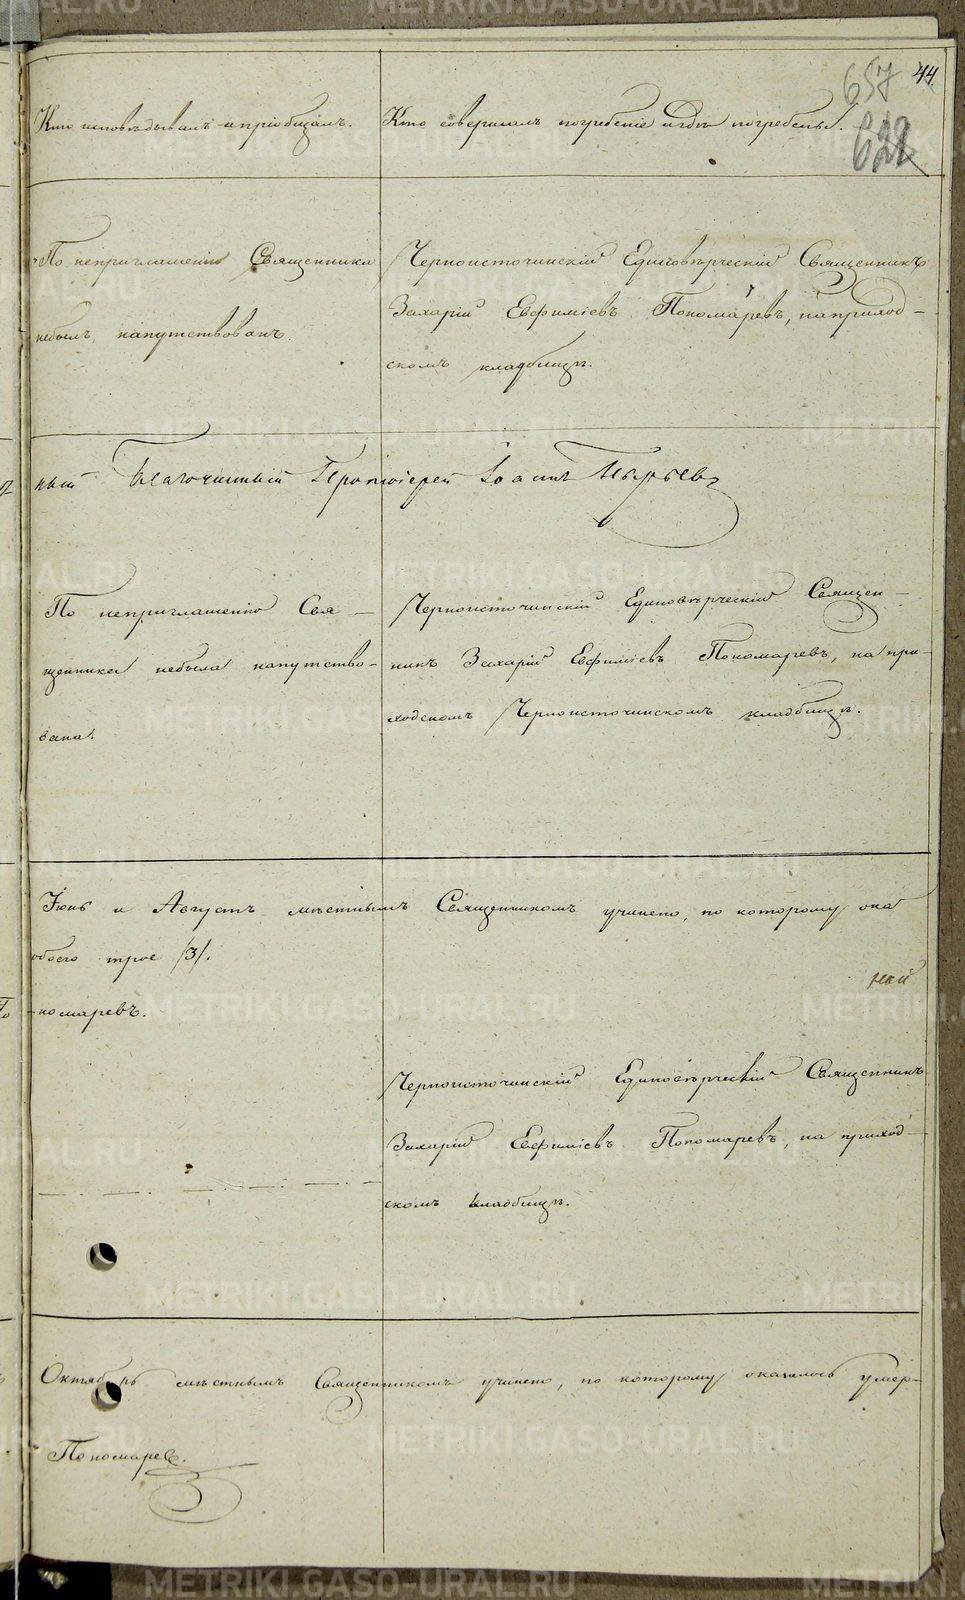 44
657
622
Кто исповѣдывалъ и пріобщалъ.
Кто совершалъ погребеніе и гдѣ погребены.
По неприглашенію Священника
небылъ напутствованъ.
Черноисточинскій Единовѣрческій Священникъ
Захарій Евфиміевъ Пономаревъ, на приход-
скомъ кладбищѣ.
ный Благочинный Протоіерей Іоаннъ
По неприглашенію Свя-
щенника небыла напутство-
вана.
Черноисточинскій Единовѣрческій Священ-
никъ Захарій Евфиміевъ Пономаревъ, на при-
ходскомъ Черноисточинскомъ кладбищѣ.
Іюнь и Августъ мѣстнымъ Священникомъ учинено, по которому ока
обоего трое /3/.
ной
По-номаревъ.
Черноисточинскій Единовѣрческій Священникъ
Захарій Евфиміевъ Пономаревъ, на приход-
скомъ кладбищѣ.
Октябрь мѣстнымъ Священникомъ учинено, по которому оказалось умер-
Пономарев.
METRIKI.GASO-URAL.RU